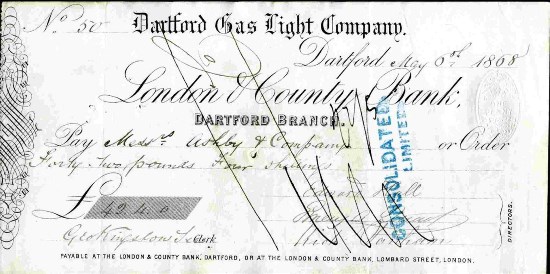 No. 50 Dartford Gas Light Company.
Dartford May 6th 1868
London & County Bank,
DARTFORD BRANCH.
Pay Messrs. Ashby & Company or Order
Forty Two pounds Four shillings
£ 42.4.0
CONSOLIDATED
LIMITED
DIRECTORS.
Clerk
PAYABLE AT THE LONDON & COUNTY BANK, DARTFORD, OR AT THE LONDON & COUNTY BANK, LOMBARD STREET, LONDON.